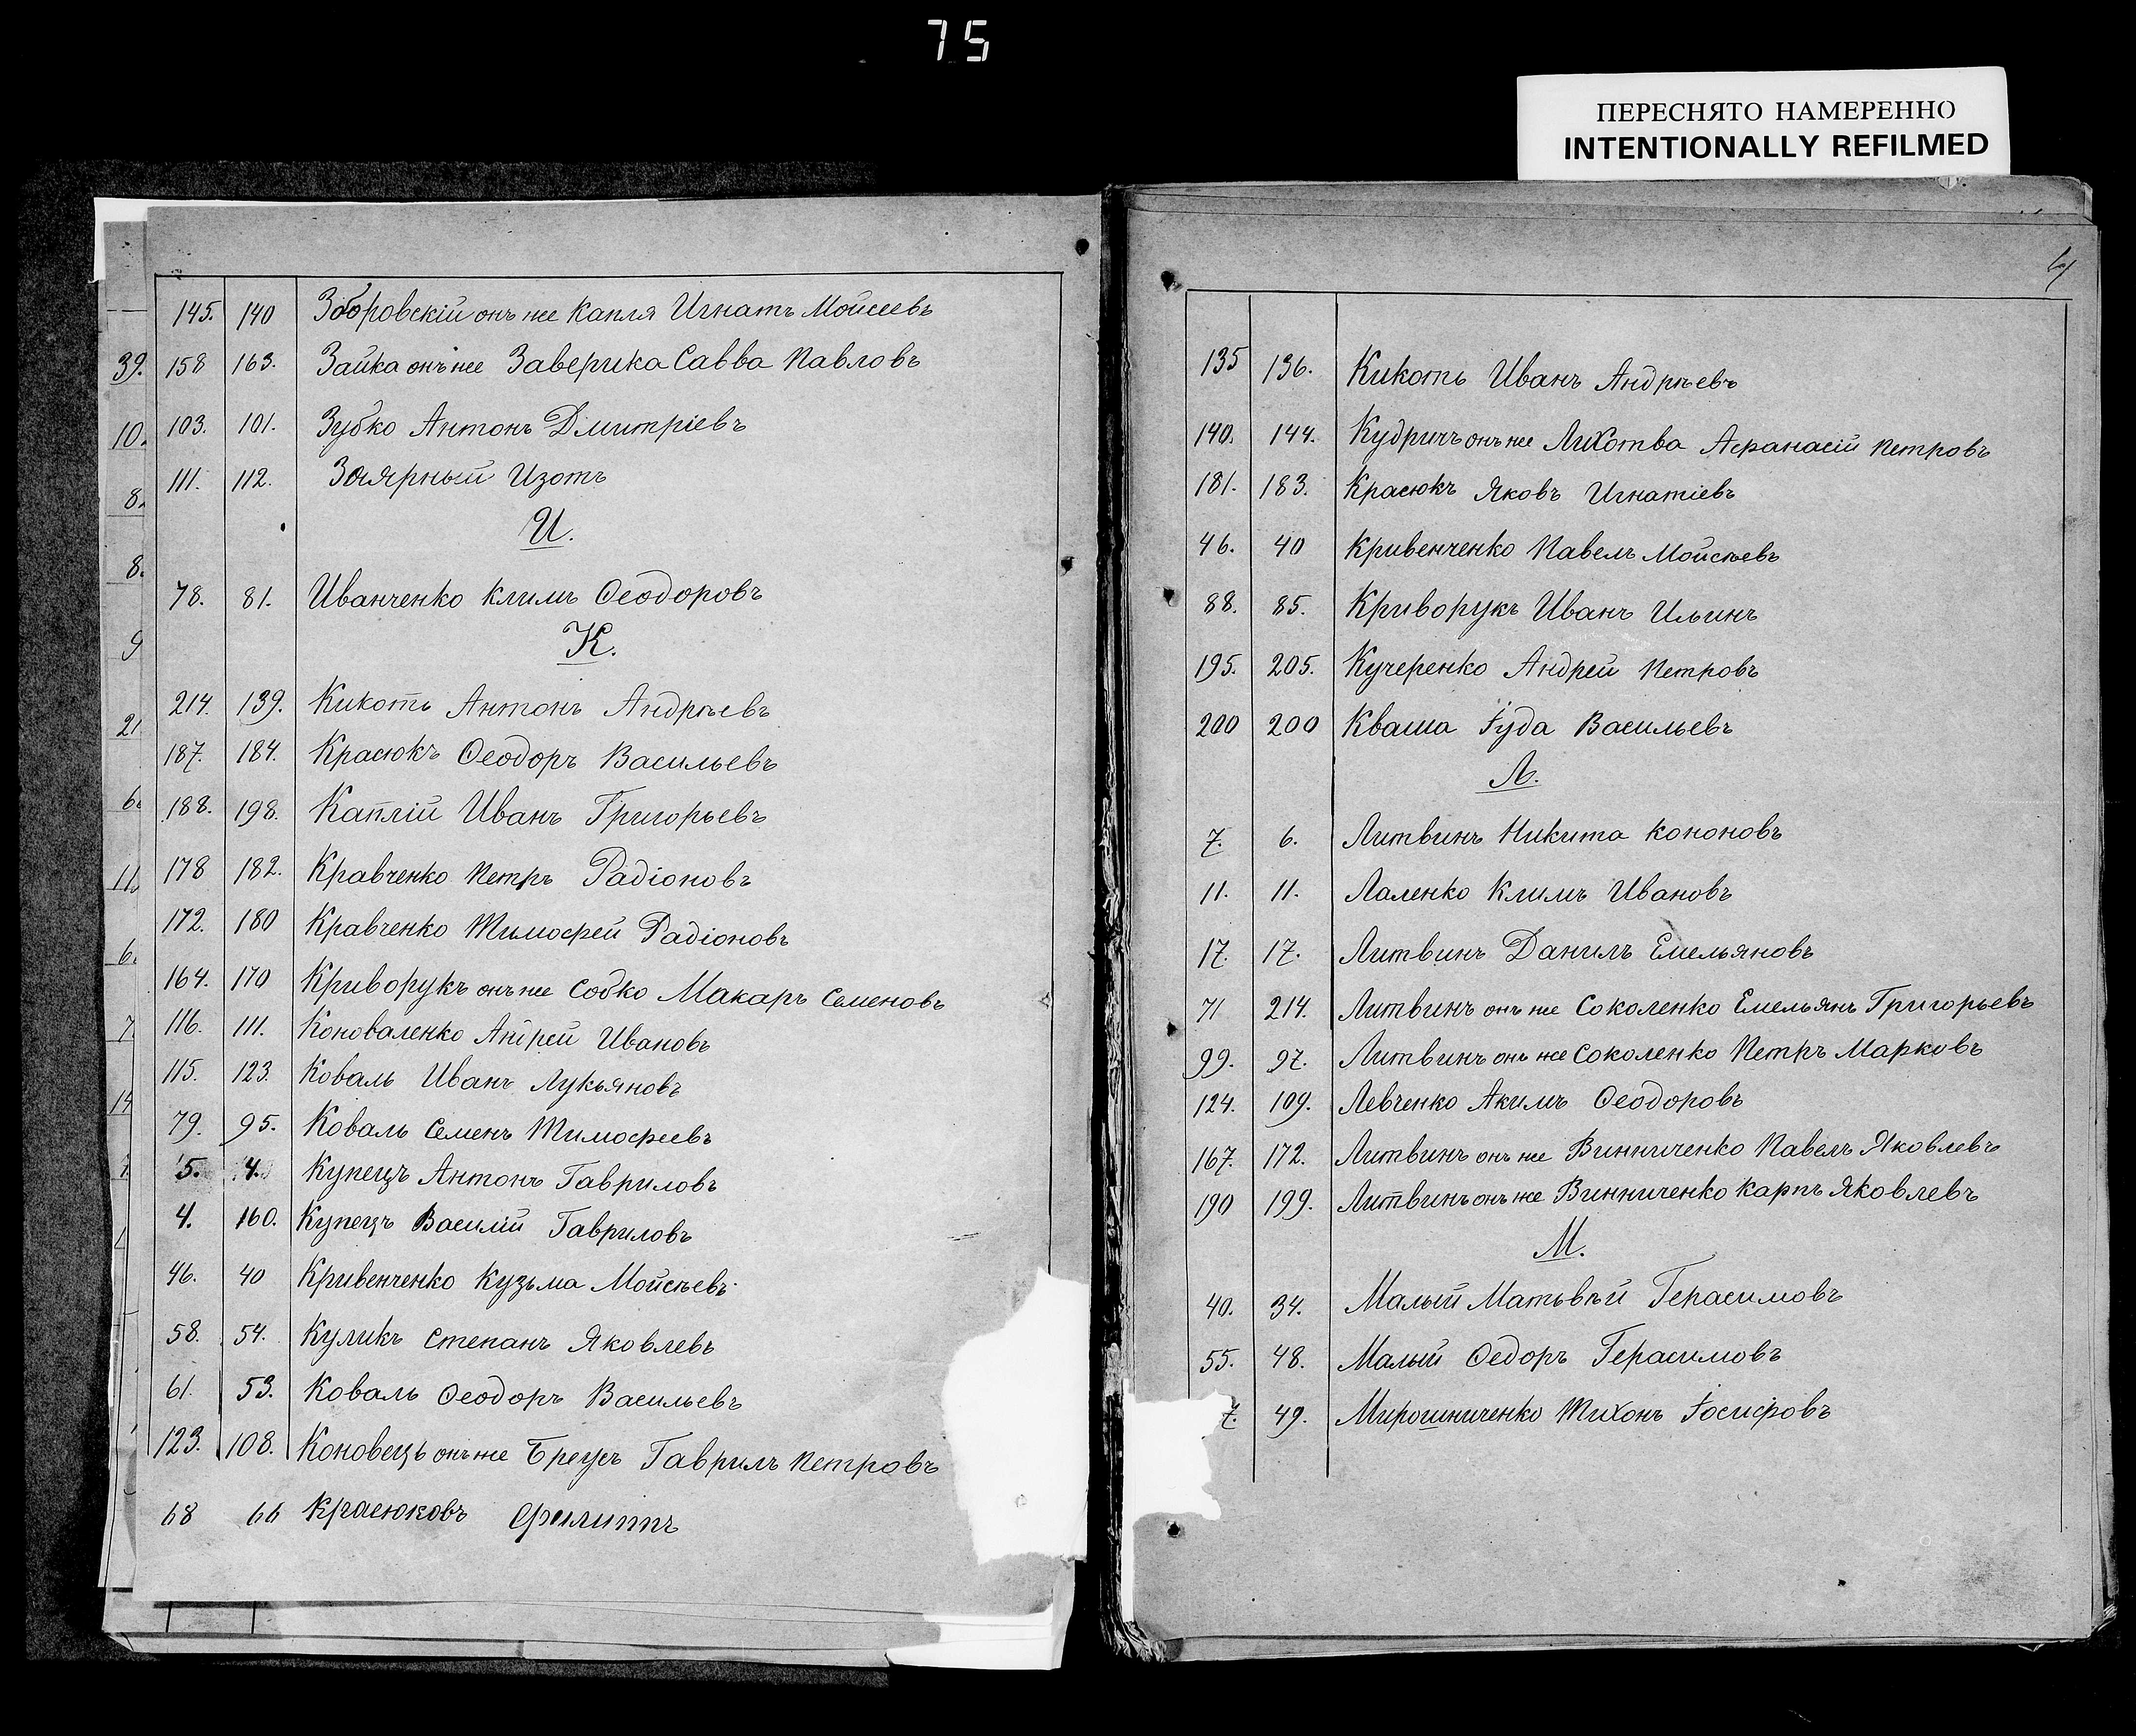 75
ПЕРЕСНЯТО НАМЕРЕННО
INTENTIONALLY REFILMED
145. 140 Зборовскій онъ же Капля Игнатъ Мойсеевъ
39. 158 163. Зайка онъ же Заверика Савва Павловъ
10. 103. 101. Зубко Антонъ Дмитріевъ
8. 111. 112. Заярный Изотъ
И.
8. 78. 81. Иванченко Климъ Ѳеодоровъ
9 К.
21 214. 139. Кикоть Антонъ Андрѣевъ
187. 184. Красюкъ Ѳеодоръ Васильевъ
6. 188. 198. Каплій Иванъ Григорьевъ
11. 178 182. Кравченко Петръ Радіоновъ
172. 180 Кравченко Тимофей Радіоновъ
6. 164. 170 Криворукъ онъ же Собко Макаръ Семеновъ
7. 116. 111. Коноваленко Андрей Ивановъ
115. 123. Коваль Иванъ Лукьяновъ
14 79. 95. Коваль Семенъ Тимофеевъ
5. 4. Купецъ Антонъ Гавриловъ
4. 160. Купецъ Василій Гавриловъ
46. 40 Кривенченко Кузьма Мойсѣевъ
58. 54. Куликъ Степанъ Яковлевъ
61. 53. Коваль Ѳеодоръ Васильевъ
123. 108. Коновецъ онъ же Брецъ Гаврилъ Петровъ
68 66 Красюковъ Филиппъ
135 136. Кикоть Иванъ Андрѣевъ
140. 144. Кудричъ онъ же Лихотва Афанасій Петровъ
181. 183. Красюкъ Яковъ Игнатіевъ
46. 40 Кривенченко Павелъ Мойсѣевъ
88. 85. Криворукъ Иванъ Ильинъ
195. 205. Кучеренко Андрей Петровъ
200 200 Кваша Іуда Васильевъ
Л.
7. 6. Литвинъ Никита Кононовъ
11. 11. Лаленко Климъ Ивановъ
17. 17. Литвинъ Данилъ Емельяновъ
71 214. Литвинъ онъ же Соколенко Емельянъ Григорьевъ
99. 97. Литвинъ онъ же Соколенко Петръ Марковъ
124. 109. Левченко Акимъ Ѳеодоровъ
167. 172. Литвинъ онъ же Винниченко Павелъ Яковлевъ
190 199. Литвинъ онъ же Винниченко Карпъ Яковлевъ
М.
40. 34. Малый Матьвѣй Герасимовъ
55. 48. Малый Ѳедоръ Герасимовъ
7. 49. Мирошниченко Тихонъ Іосифовъ